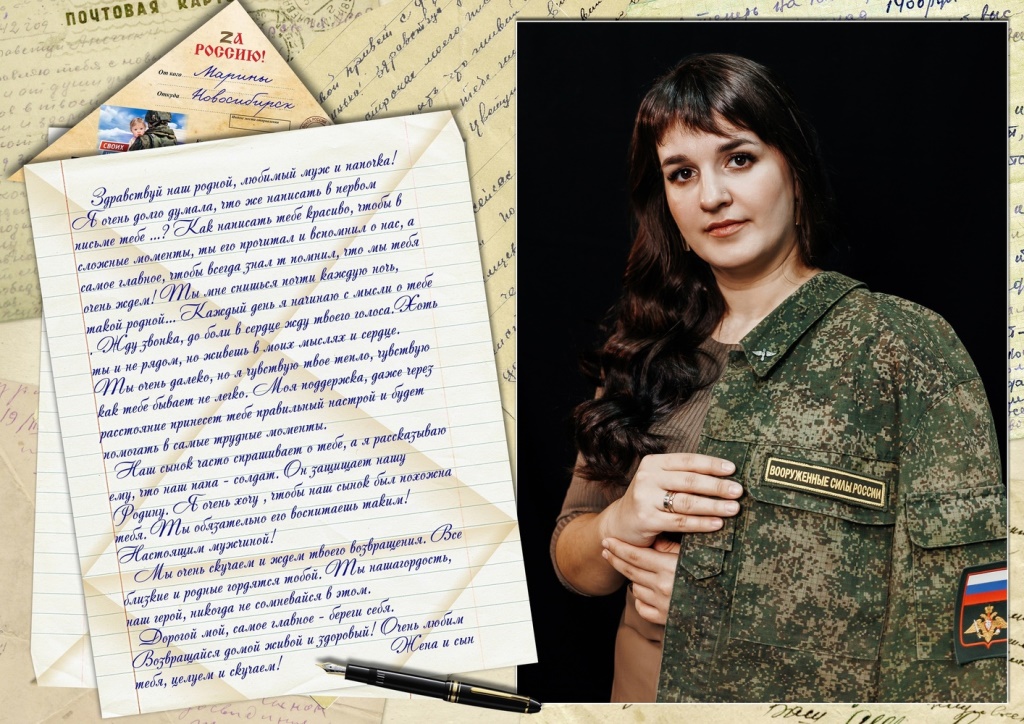 ПОЧТОВАЯ КАРТО
ZА
РОССИЮ!
От кого Марины
Откуда Новосибирск
СВОИХ
Здравствуй наш родной, любимый муж и папочка!
Я очень долго думала, что же написать в первом
письме тебе ...? Как написать тебе красиво, чтобы в
сложные моменты, ты его прочитал и вспомнил о нас, а
самое главное, чтобы всегда знал т помнил, что мы тебя
очень ждем! Ты мне снишься почти каждую ночь,
такой родной... Каждый день я начинаю с мысли о тебе
. Жду звонка, до боли в сердце жду твоего голоса. Хоть
ты и не рядом, но живешь в моих мыслях и сердце.
Ты очень далеко, но я чувствую твое тепло, чувствую
как тебе бывает не легко. Моя поддержка, даже через
расстояние принесет тебе правильный настрой и будет
помогать в самые трудные моменты.
Наш сынок часто спрашивает о тебе, а я рассказываю
ему, что наш папа - солдат. Он защищает нашу
Родину. Я очень хочу , чтобы наш сынок был похожна
тебя. Ты обязательно его воспитаешь таким!
Настоящим мужчиной!
Мы очень скучаем и ждем твоего возвращения. Все
близкие и родные гордятся тобой. Ты нашагордость,
наш герой, никогда не сомневайся в этом.
Дорогой мой, самое главное - береги себя.
Возвращайся домой живой и здоровый! Очень любим
тебя, целуем и скучаем! Жена и сын
ВООРУЖЕННЫЕ СИЛЫ РОССИИ